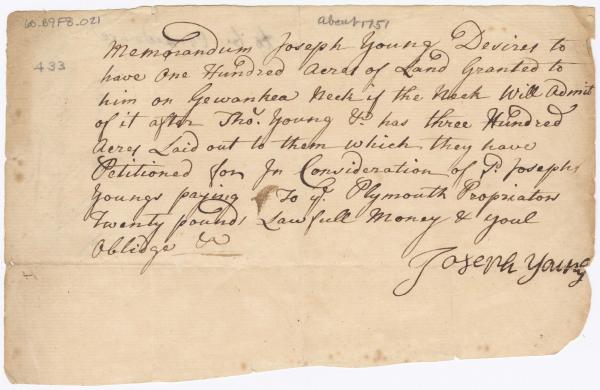 60.B9F8.021
About 1751
433
Memorandum Joseph Young Desires to
have One Hundred Acres of Land Granted to
him on Gewankea Neck if the Neck Will Admit
of it after Tho.s Young &c. has three Hundred
Acres Laid out to them which they have
Petitioned for In Consideration of Sd. Josephs
Youngs paying To ye. Plymouth Propriators
Twenty pounds Lawfull Money & Youl
Oblidge &c
Joseph Young